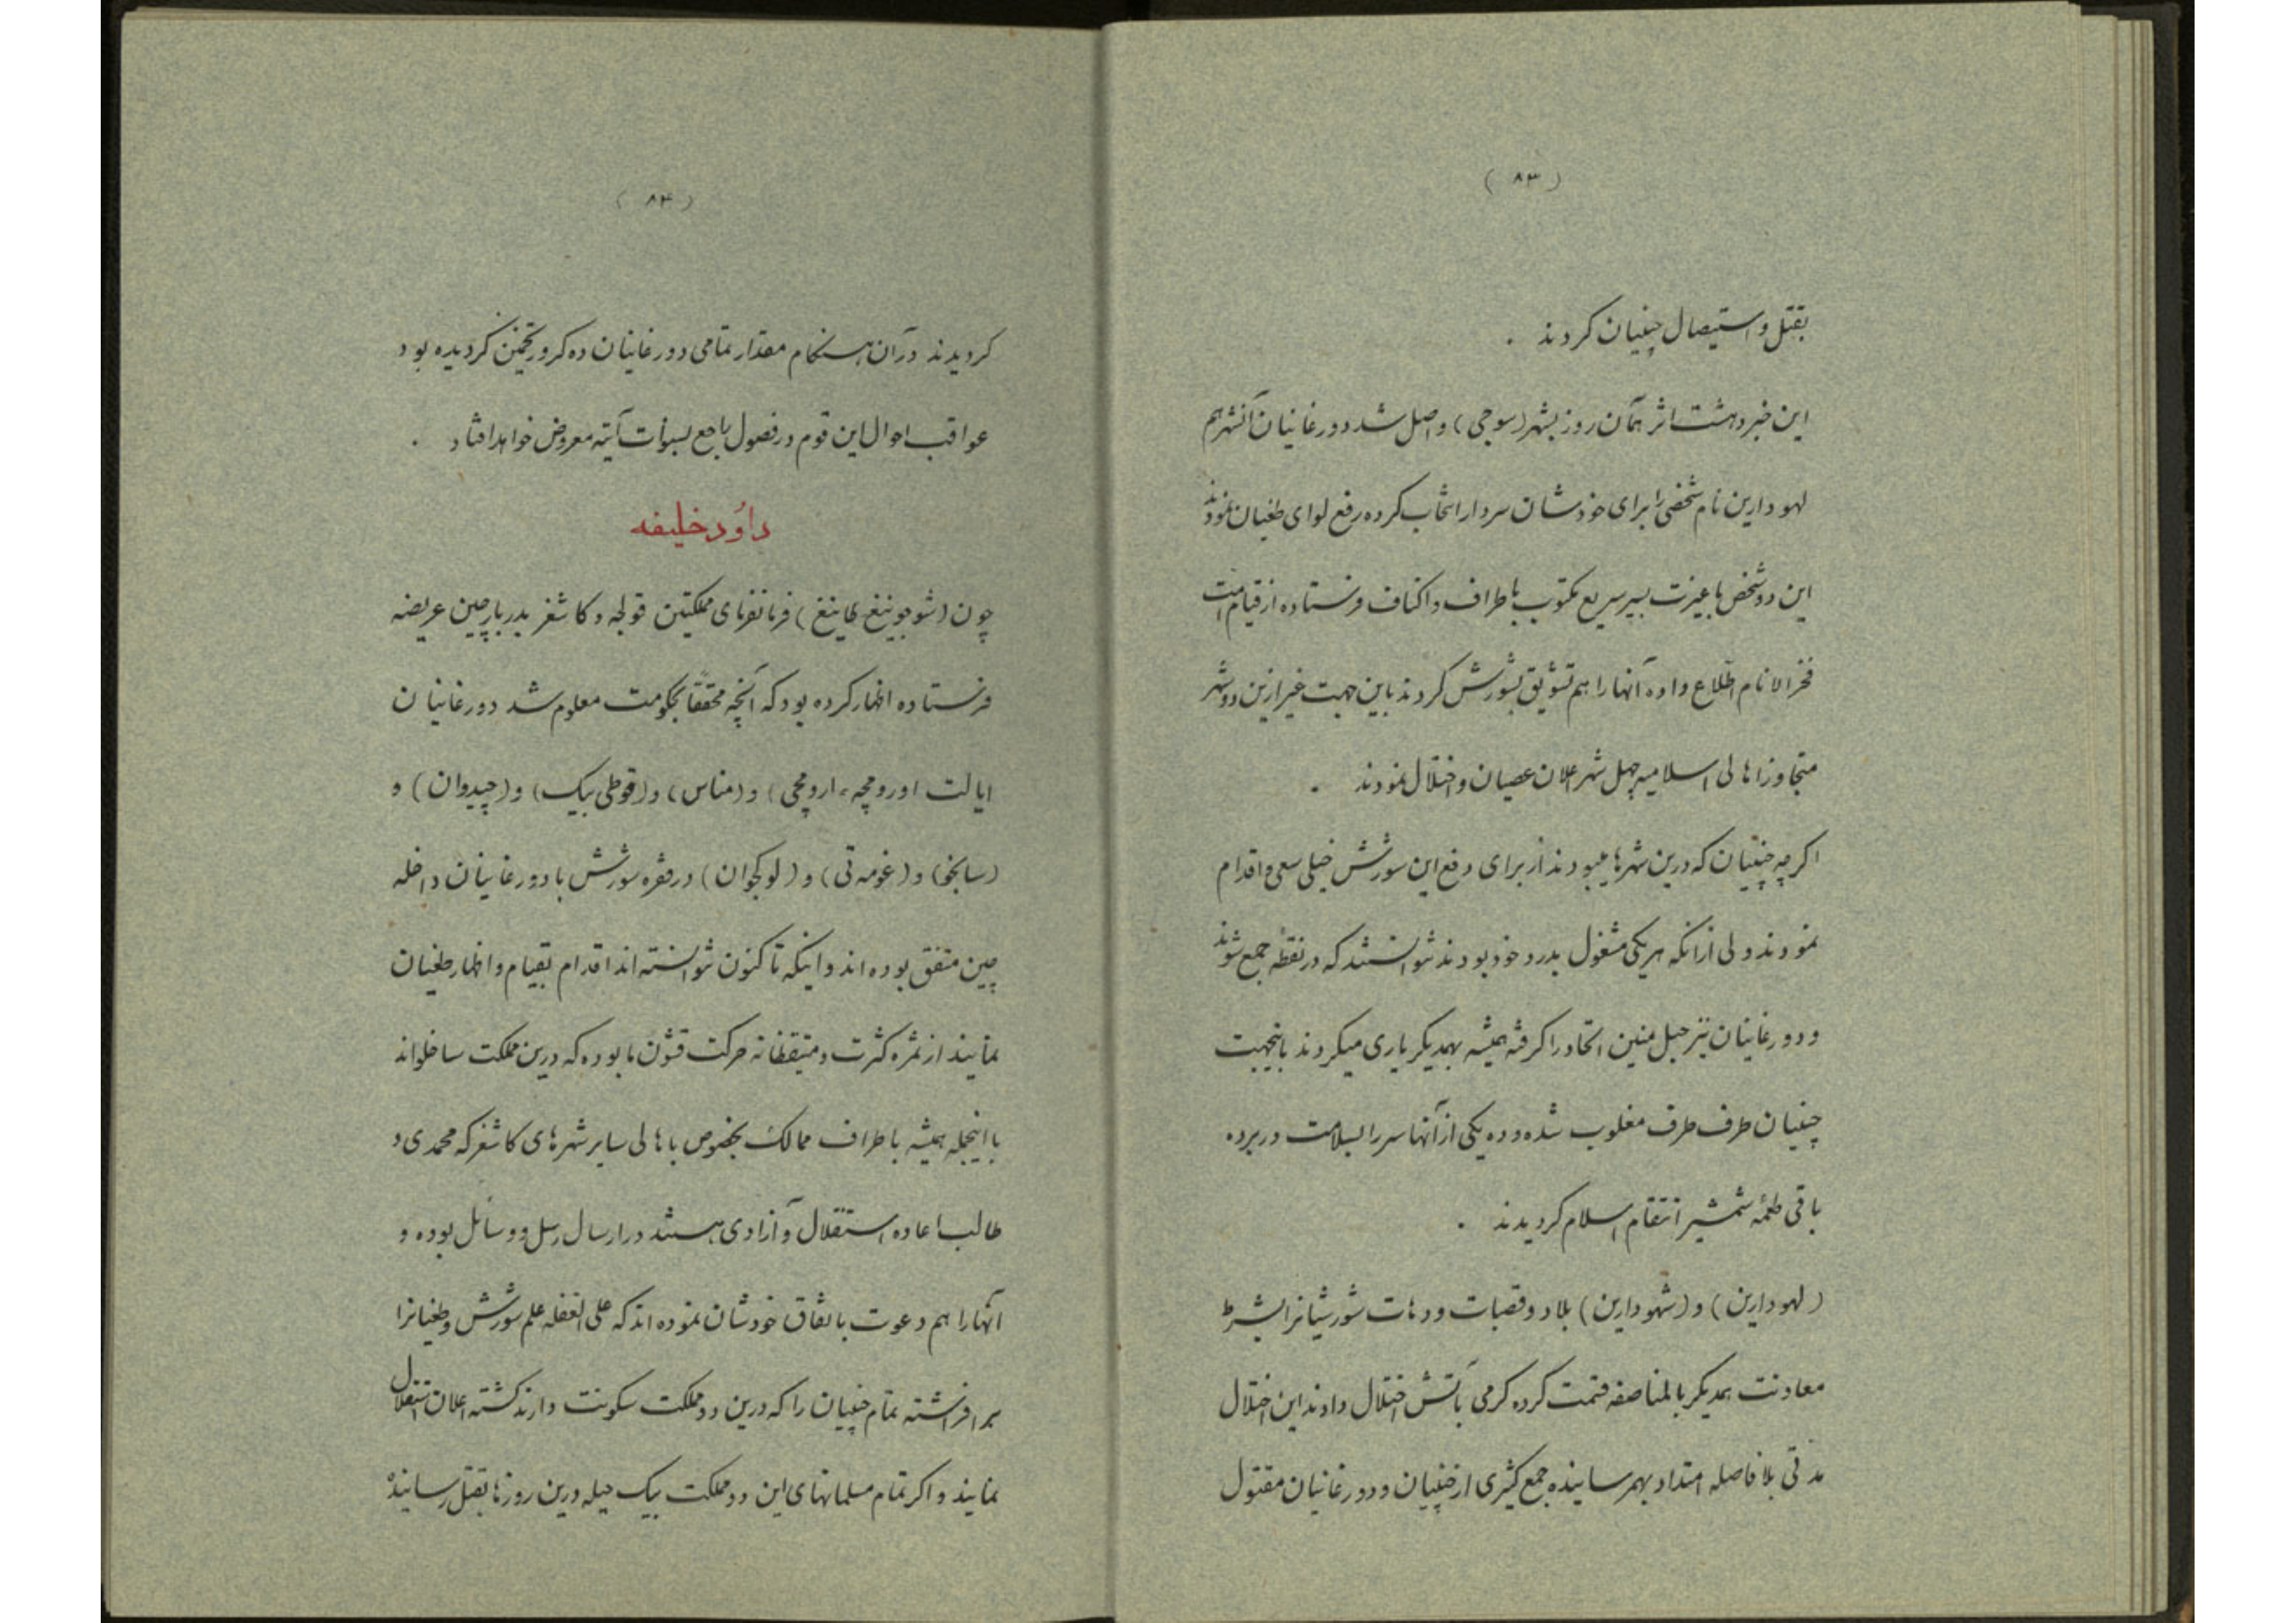 (۸۳)
بقتل و استیصال چینیان کردند .
این خبر دهشت اثر همان روز بشهر (سوجی) واصل شد دورغانیان آنشهر هم
لهودارین نام شخصی را برای خودشان سردار انتخاب کرده رفع لوای طغیان نمودند
این دو شخص با غیرت بسیر سریع مکتوب باطراف و اکناف فرستاده از قیام امت
فخر الانام اطلاع داده آنها را هم تشویق بشورش کردند باین جهت غیر ازین دو شهر
متجاوز اهالی اسلامیه چهل شهر اعلان عصیان و اختلال نمودند .
اکرچه چینیان که درین شهرها میبودند از برای دفع این شورش خیلی سعی و اقدام
نمودند ولی ازانکه هریکی مشغول بدرد خود بودند نتوانستند که در نقطهٔ جمع شوند
و دورغانیان نیز حبل متین اتحاد را کرفته همیشه بهمدیکر یاری میکردند باینجهت
چینیان طرف طرف مغلوب شده و ده یکی از آنها سر را بسلامت دربرده
باقی طعمهٔ شمشیر انتقام اسلام کردیدند .
(لهودارین) و (شهودارین) بلاد و قصبات و دهات شورشیانرا بشرط
معاونت همدیکر بالمناصفه قسمت کرده کرمی بآتش اختلال دادند این اختلال
مدتی بلا فاصله امتداد بهم رسانیده جمع کثیری از چینیان و دورغانیان مقتول
(۸۴)
کردیدند در آن هنکام مقدار تمامی دورغانیان ده کرور تخمین کردیده بود
عواقب احوال این قوم در فصول راجع بسنوات آتیه معروض خواهد افتاد .
داوُد خلیفه
چون (شوجوینغ طاینغ) فرمانفرمای مملکتین قولجه و کاشغر بدربار چین عریضه
فرستاده اظهار کرده بود که آنچه محققاً بحکومت معلوم شد دورغانیان
ایالت اورومچه، ارومچی) و (مناس) و (قوطی بیک) و (چیدوان) و
(سانجو) و (غومه تی) و (لوکچوان) در فقره شورش با دورغانیان داخله
چین متفق بوده اند و اینکه تاکنون نتوانسته اند اقدام بقیام و اظهار طغیان
نمایند از ثمره کثرت و متیقظانه حرکت قشون ما بوده که درین مملکت ساخلواند
با اینجمله همیشه باطراف ممالک بخصوص باهالی سایر شهرهای کاشغر که محمدی و
طالب اعاده استقلال و آزادی هستند در ارسال رسل و وسائل بوده و
آنها را هم دعوت باتفاق خودشان نموده اند که علی الغفله علم شورش و طغیانرا
برافراشته تمام چینیان را که درین دو مملکت سکونت دارند کشته اعلان استقلال
نمایند و اکر تمام مسلمانهای این دو مملکت بیک حیله درین روزها بقتل رسانیده